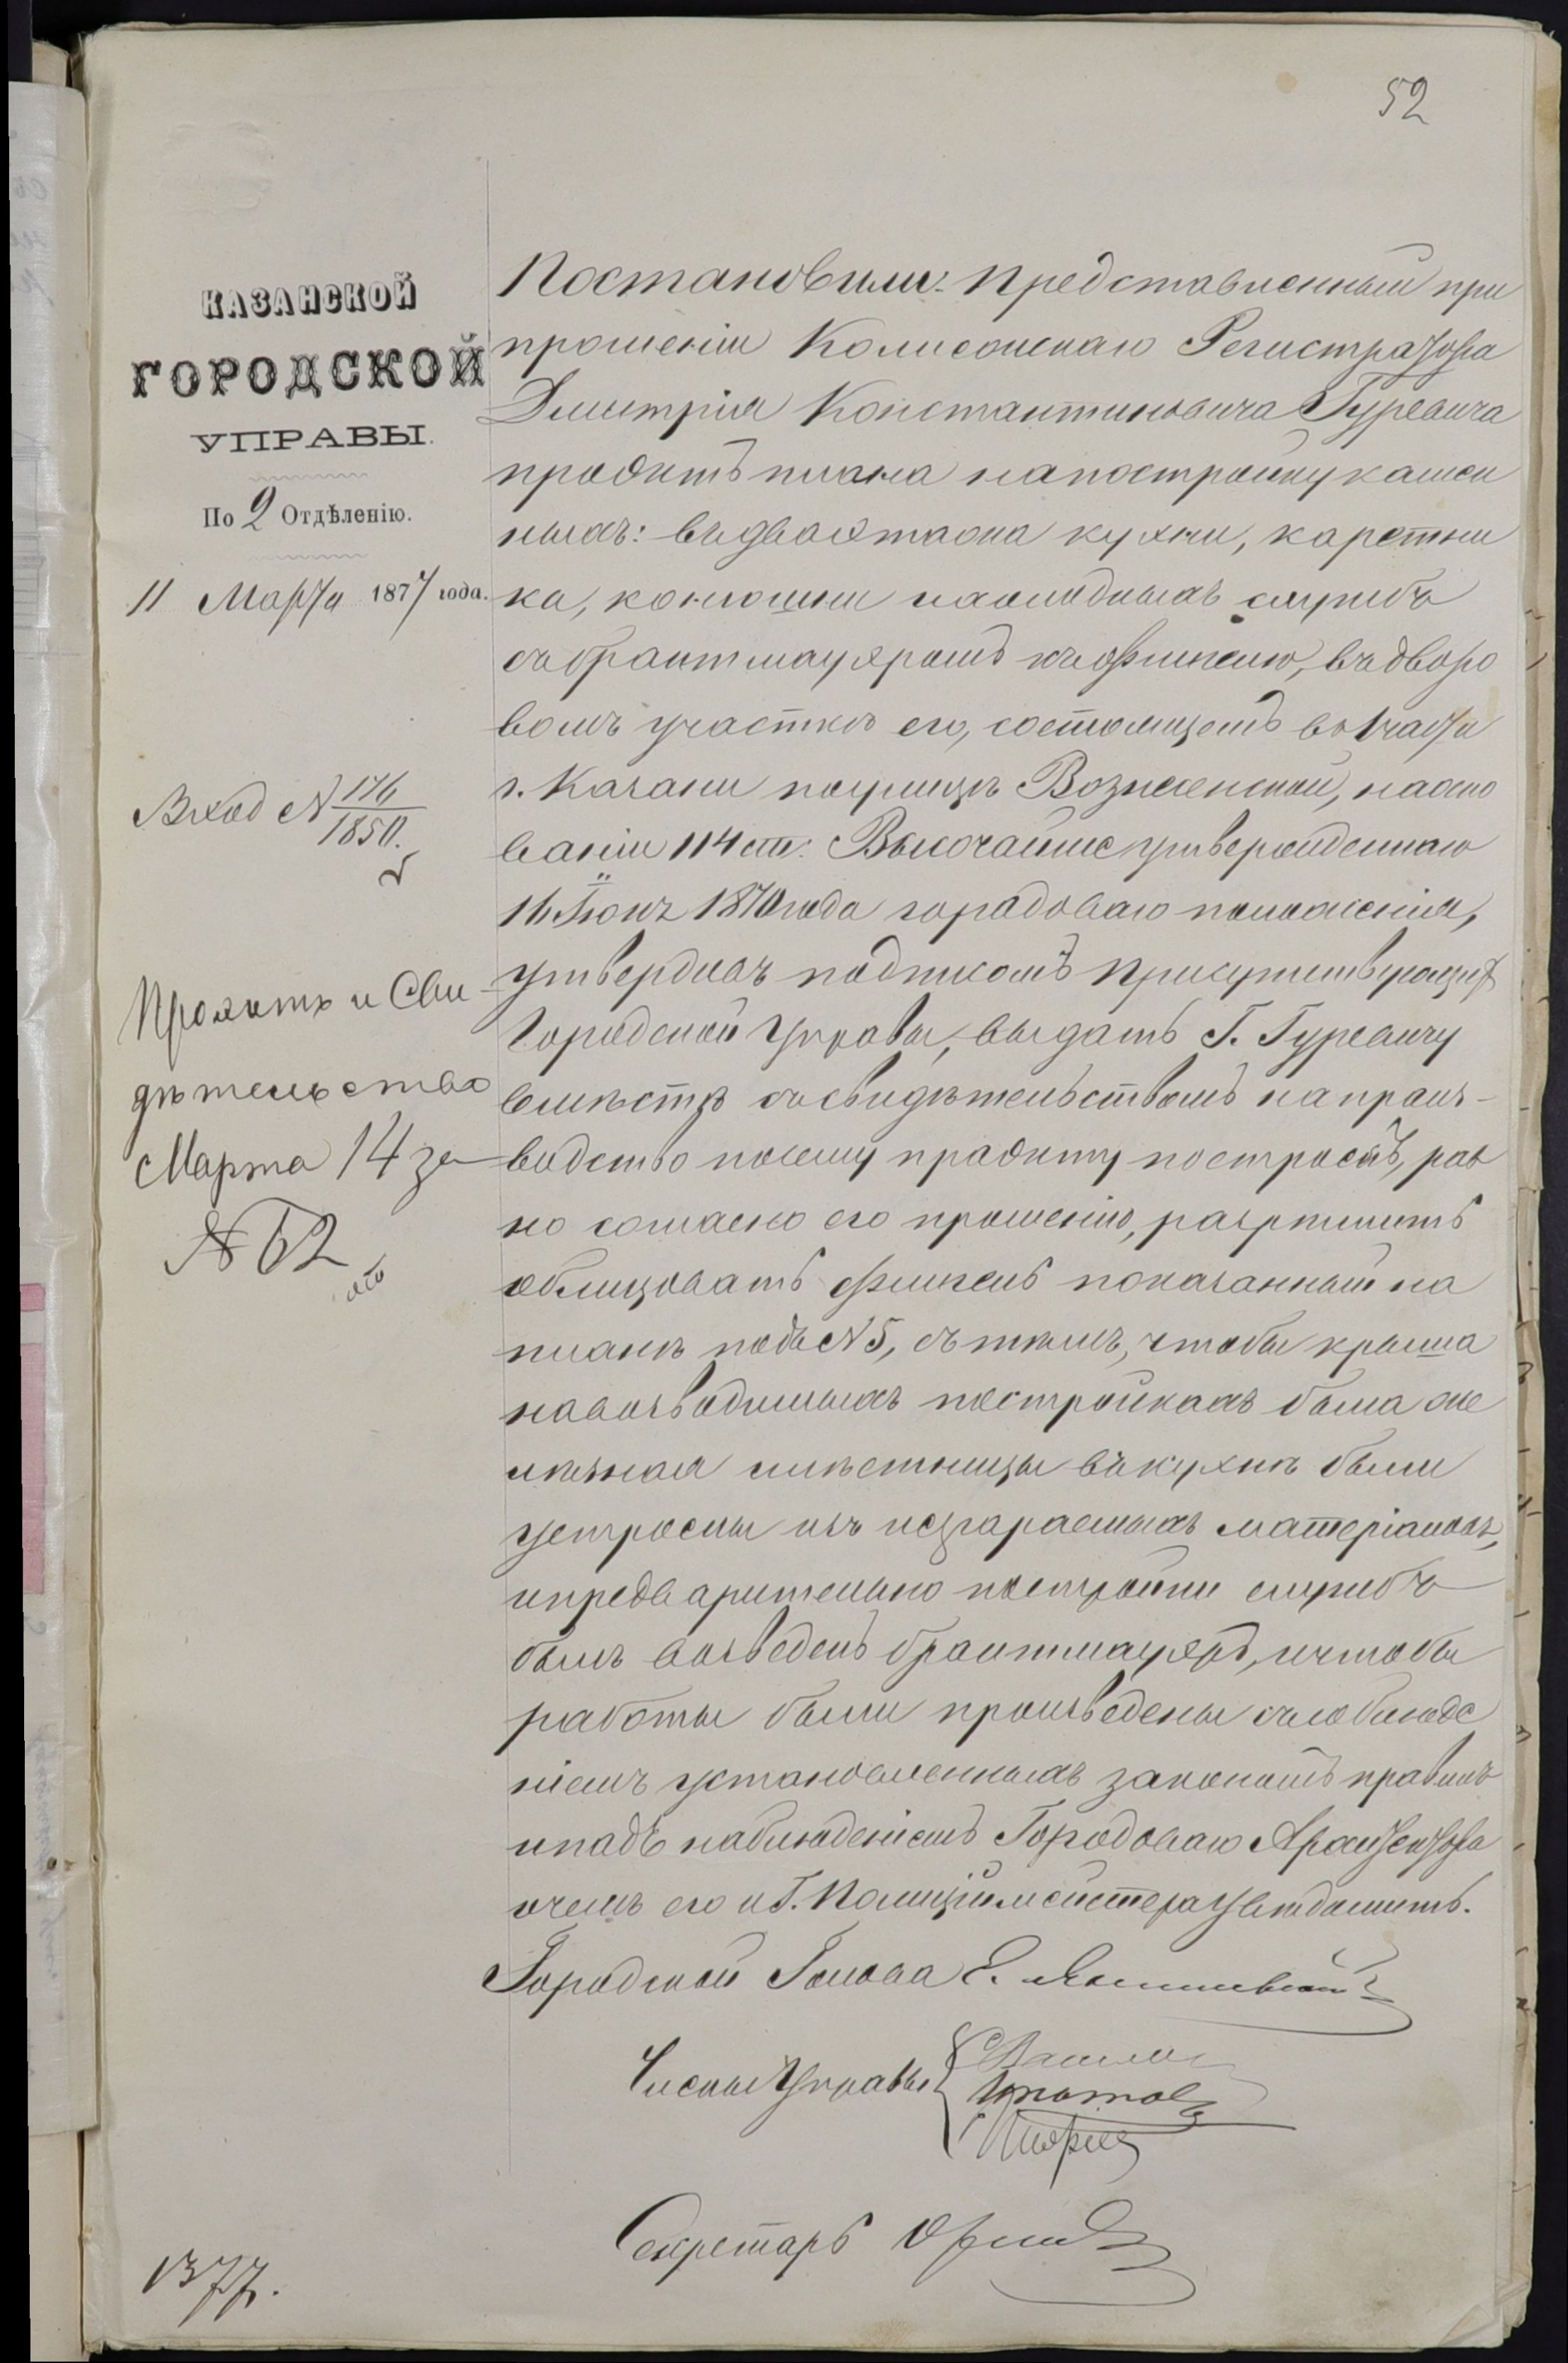 52
КАЗАНСКОЙ
ГОРОДСКОЙ
УПРАВЫ.
По 2 Отдѣленію.
11 Марта 1877 года.
Вход № 176/1850.
Проэктъ и Сви-
дѣтельство
Марта 14 за
№ 62
Постановили: Представленный при
прошеніи Колежскаго Регистратора
Дмитрія Константиновича Гуревича
проэктъ плана на постройку камен
ныхъ: въ два этажа кухни, каретни
ка, конюшни и холодныхъ службъ
съ брантмауэромъ къ флигелю, въ дворо
вомъ участкѣ его, состоящемъ въ 1 части
г. Казани по улицѣ Вознесенской, на осно
ваніи 114 ст. Высочайше утвержденнаго
16 Іюня 1870 года городоваго положенія,
утвердивъ подписомъ присутствующих
Городской Управы, выдать Г. Гуревичу
вмѣстѣ съ свидѣтельствомъ на произ-
водство по сему проэкту построекъ, рав
но согласно его прошенію, разрѣшить
облицовать флигель показанный на
планѣ подъ № 5, съ тѣмъ, чтобы крыша
на возводимыхъ постройкахъ была же
лѣзная лѣстницы въ кухнѣ были
устроены изъ несгараемыхъ матеріаловъ,
и предварительно постройки службъ
былъ возведенъ брантмауэръ, и чтобы
работы были произведены съ соблюде
ніемъ установленныхъ закономъ правилъ
и подъ наблюденіемъ Городоваго Архитектора
о чемъ его и Г. Полиціймейстера увѣдомить.
Городской Голова Е. Янишевскій
Члены Управы
Ипатов
Секретарь
1377.